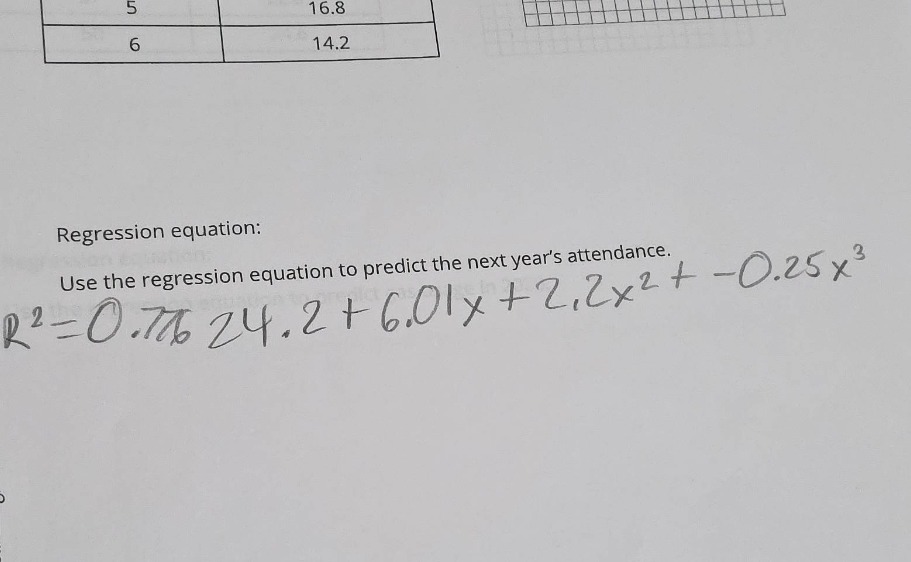 5 16.8
6 14.2
Regression equation:
Use the regression equation to predict the next year's attendance.
R²=0.776 24.2+6.01x+2.2x²+-0.25x³